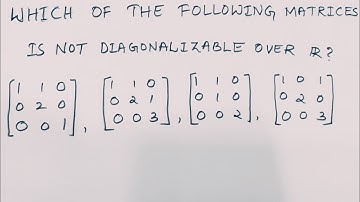 WHICH OF THE FOLLOWING MATRICES
IS NOT DIAGONALIZABLE OVER ℝ?
[1 1 0 [1 1 0 [1 1 0 [1 0 1
0 2 0 0 2 1 0 1 0 0 2 0
0 0 1], 0 0 3], 0 0 2], 0 0 3]